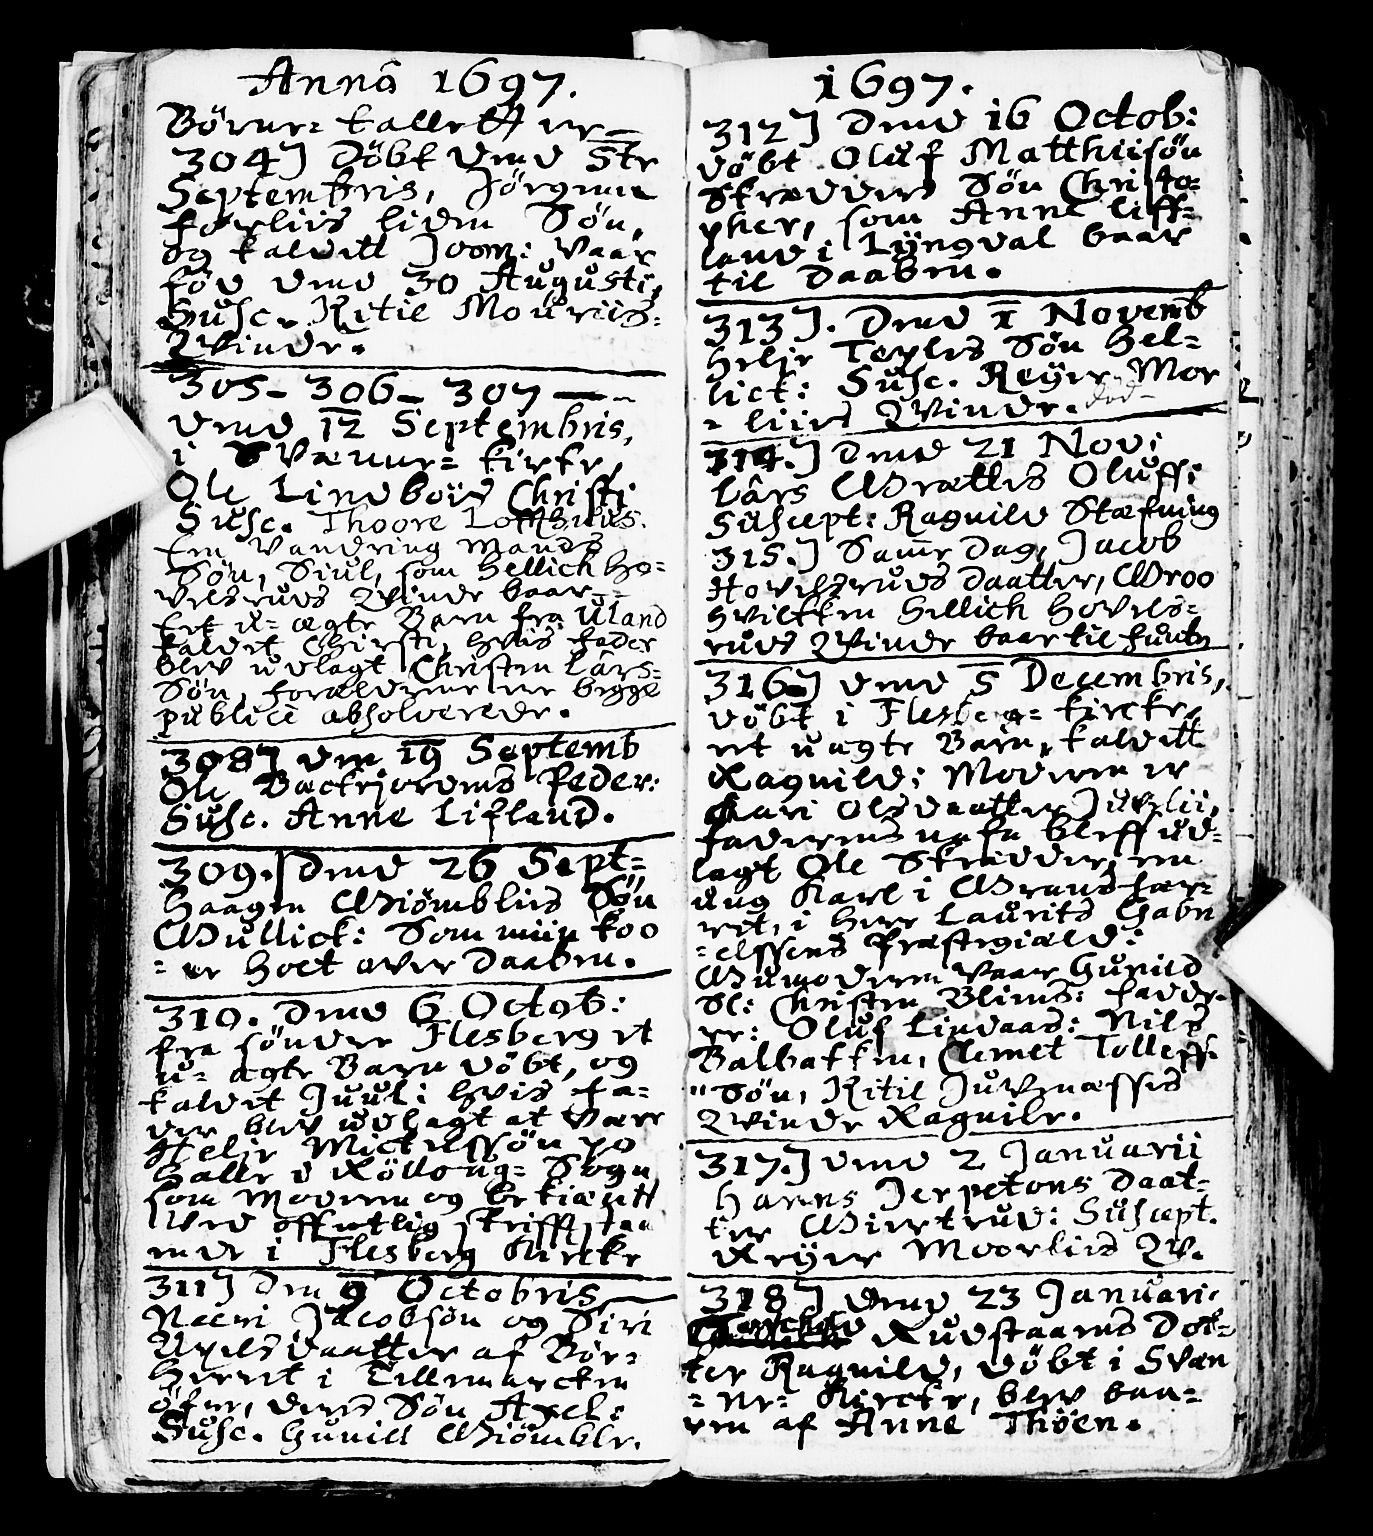 Anno 1697.
Børne= tallett er
304] Døbt dend 5te
Septembris, Jørgine
forliis liden Søn,
og kaldett Joen: vaar
fød dend 30 Augusti,
Susc. Kitil Mouriis=
Qvinde.
305_ 306_ 307
dend 12 Septembris,
i Svænne= kirke,
Ole Lindboes Christi
Susc. Thoore
En Vandring Mands
Søn, Siul, som Hellich Ho=
velsruds Qvinde baar
Eet u= ægte Barn fra Uland
kaldet Christi, hvis fader
blev udlagt Christen Lârs=
Søn, forældrene er begge
publicè absolverede.
308] den 19 Septemb
Ole Backejordens Peder:
Susc. Anne Lifland.
309.] dend 26 Sept=
Haagen Giømblies Søn
Gullick: Som miin koo
= er holt over Daaben.
310. dend 6 Octob:
fra sønder Flesberg et
u= ægte Barn døbt, og
kaldet Juul: hvis fa=
der blev udlagt at være
Helje Mickelssøn po
Halle i Rølloug= Sogn
som Moderen og bekiændt
Ved offentlig skrifft staa
ende i Flesberg Kircke
311] Den 9 Octobris
Jacobsøn og Siri
Axelsdaatter af Bør=
Herret i Tillemarcken
øfver, deres Søn Axel:
Susc. Gunild Giømble.
1697.
312] Dend 16 Octob:
døbt Oluf Matthiisøn
Skredders Søn Christo=
pher, som Anne liff=
land i Lyngdal baar
til Daaben.
313]. Dend 1 Novemb
Helje Toples Søn Hel=
lick: Susc. Reyer Mor
= liies Qvinde. død-
314.] Dend 21 Nov:
Lârs Grættes Oluff:
Suscept: Ragnild Stæfning
315.] Samme Dag, Jacob
Hovelsruds Daatter, Groo
Hvilken Hellich Hovels=
ruds Qvinde baar til funten
316] dend 5 Decembris,
døbt i Flesberg= kircke,
et uægte Barn, kaldett
Ragnild: Moderen er
Kari Olsdaatter
faderens nafn bleff ud=
lagt Ole Skredder, en
ung Karl i Grans=hær=
ret, i Herr Laurits Gabri
=elssens Præstegiæld:
Gumoderen vaar Gunild
Sl: Christen Blims: fadde=
re: Oluf Lindaas: Nils
Balbakken, Clemet Tolleff=
"Søn, Kitil Juvenæsses
Qvinde Ragnile.
317.] dend 2 Januarii
Hanns Jerpetons Daat=
ter Giertrud: Suscept.
Reyer Moorliis Qv.
318] Dend 23 Januari
Rudstaaens Dot=
ter Ragnild, døbt i Svæn
= ne= Kircke, blev baa=
ren af Anne Thøen.